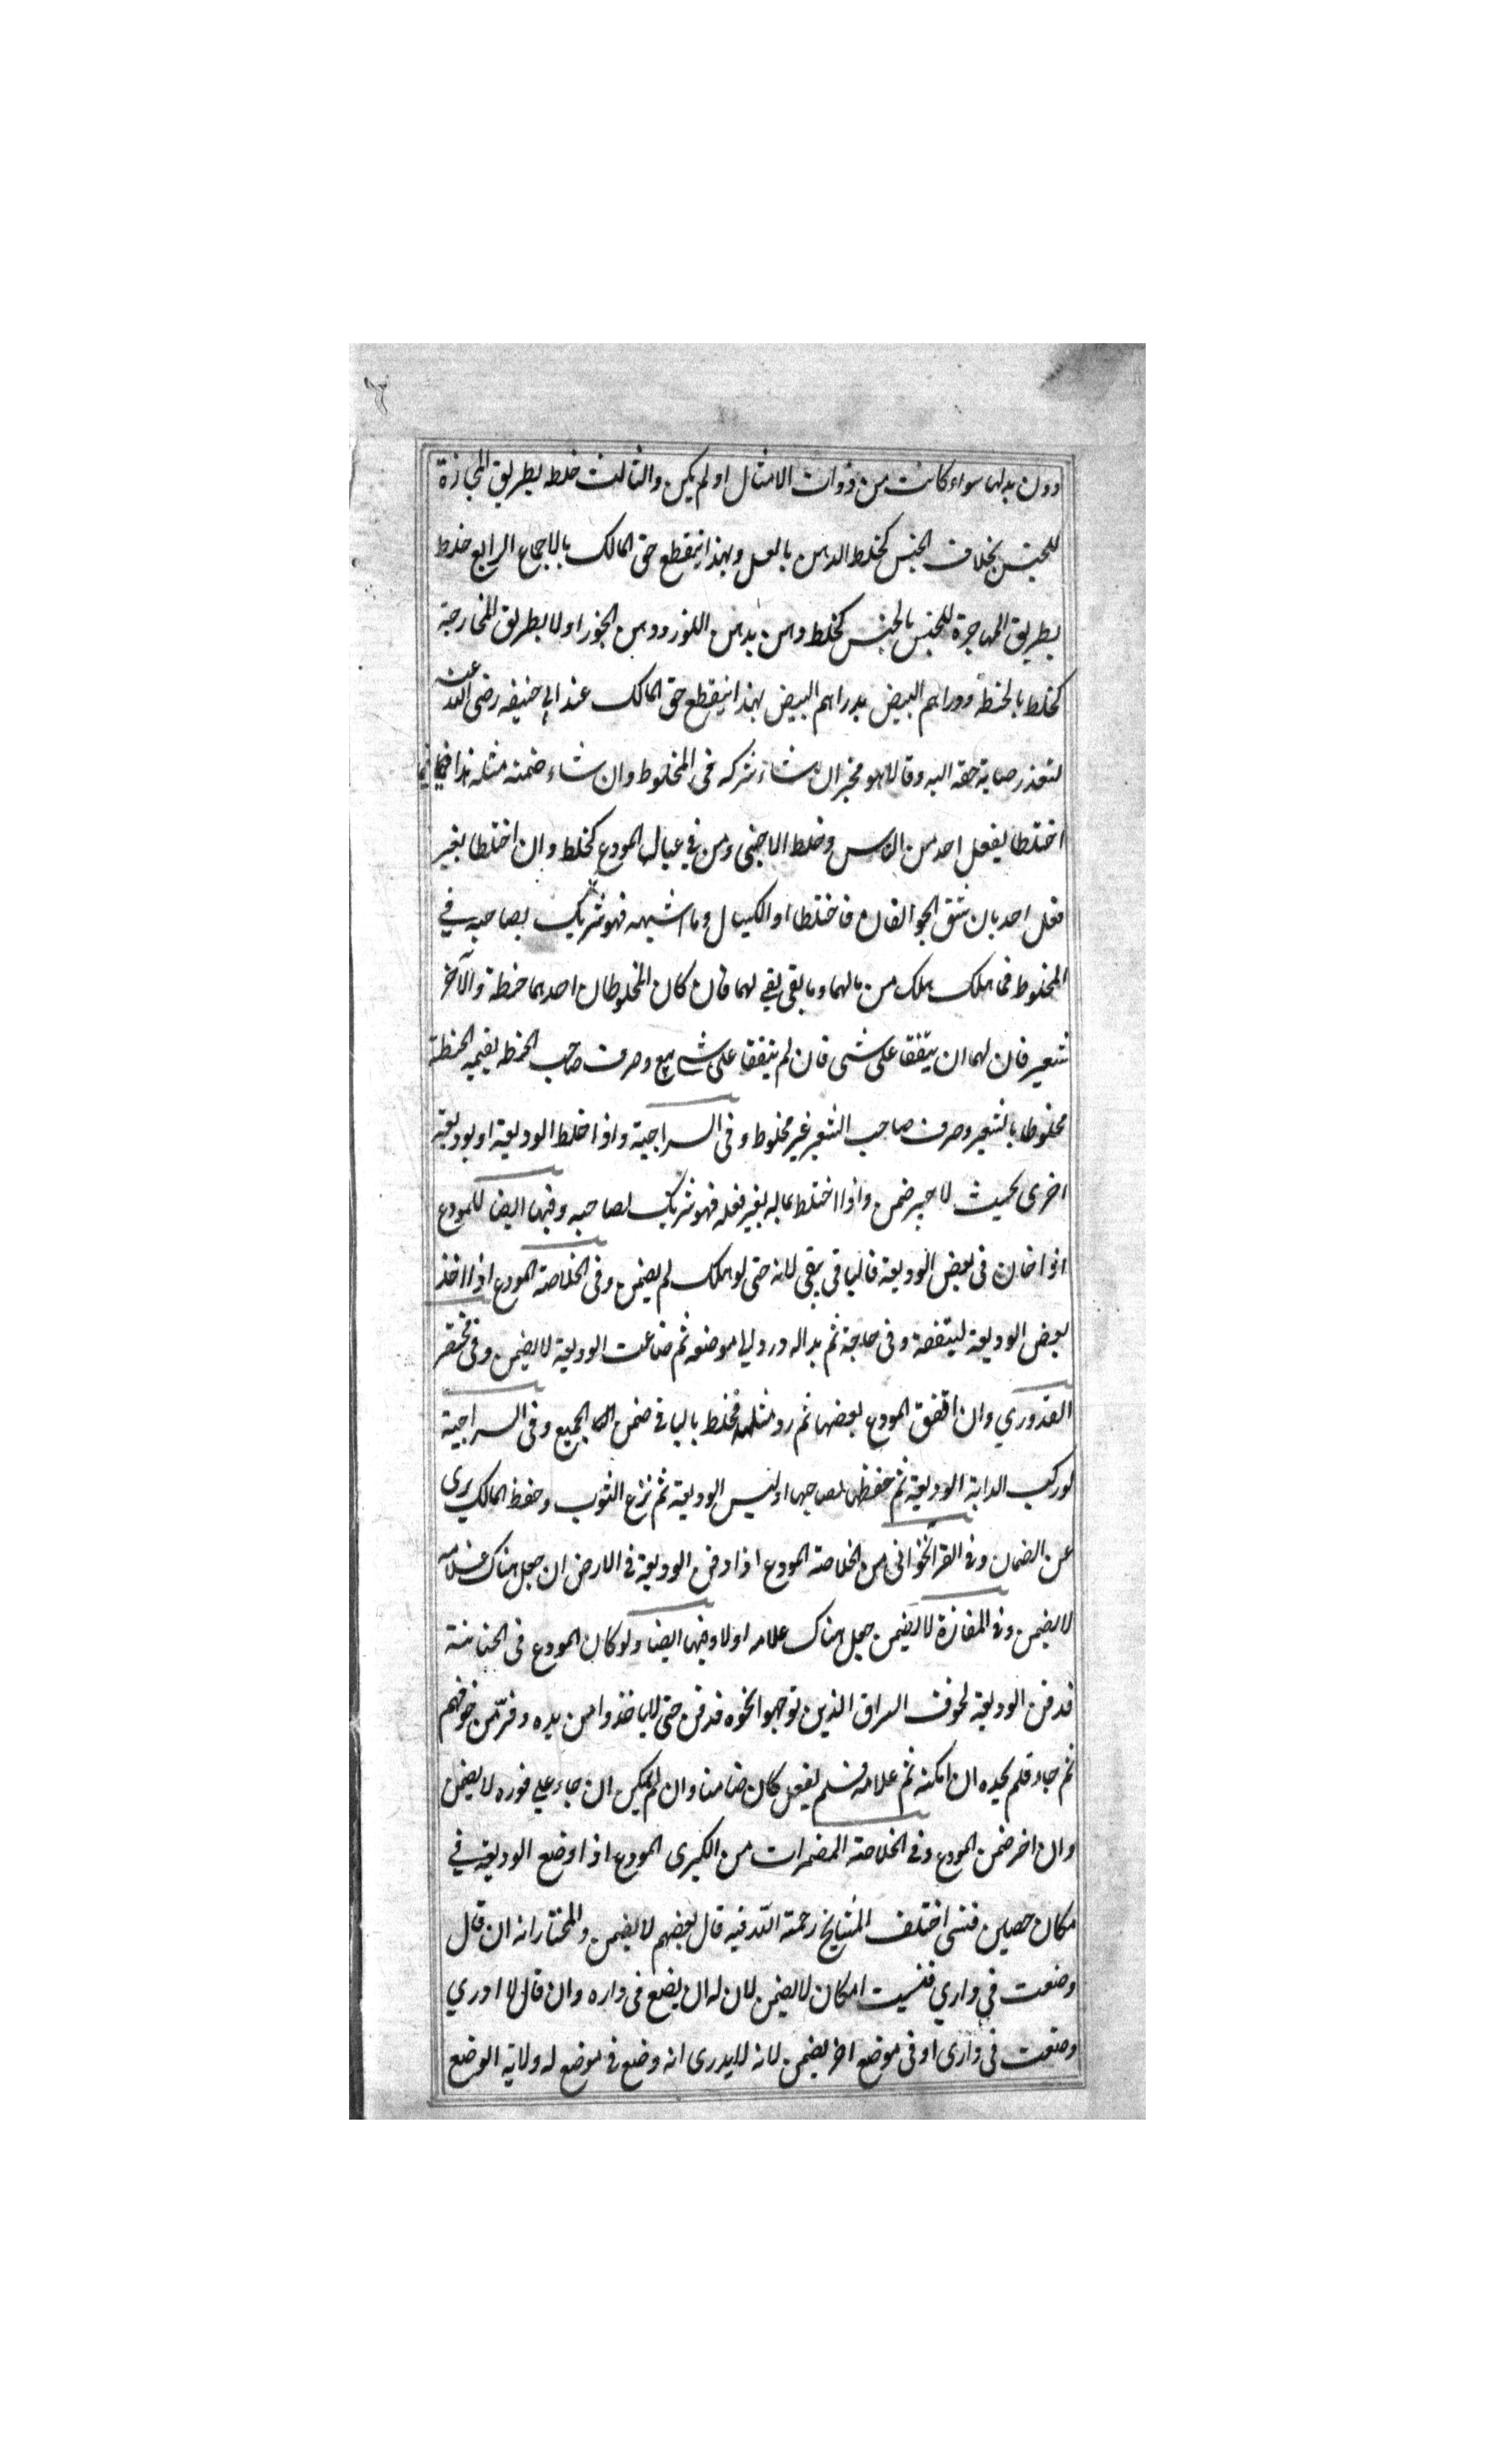 دون بدلها سواء كانت من ذوات الامثال او لم يكن والثالث خلط بطريق المجازة
للجنس بخلاف الجنس كخلط الدهن بالعسل وبهذا ينقطع حق المالك بالاجماع الرابع خلط
بطريق المهاجرة للجنس بالجنس كخلط دهن بدهن اللوز ودهن الجوز اولا بطريق المخارجة
كخلط بالحنطة ودراهم البيض بدراهم البيض بهذا ينقطع حق المالك عند ابي حنيفه رضى الله عنه
لتعذر حقه اليه وقالا هو مخير ان شاء شركه فى المخلوط وان شاء ضمنه مثله هذا فيما
اختلطا بفعل احد من الناس وخلط الاجنبى ومن في عيال المودع كخلط وان اختلطا بغير
فعل احد بان شق الجوالقان فاختلطا او الكيال وما اشبهه فهو شريك بصاحبه في
المخلوط فما هلك هلك من مالهما وما بقى بقي لهما فان كان المخلوطان احدهما حنطة والآخر
شعير فان لهما ان يتفقا على شى فان لم يتفقا على شى بيع وصرف صاحب الحنطه بقيمه الحنطة
مخلوطا بالشعير وصرف صاحب الشعير غير مخلوط وفى السراجية واذا خلط الوديعة او بوديعة
اخرى بحيث لا ضمن واذا اختلط بماله بغير فعله فهو شريك لصاحبه وفيها ايضا للمودع
اذا خان فى بعض الوديعة فالباقى بقى لانه حتى لو هلك لم يضمن وفى الخلاصة المودع اذا اخذ
بعض الوديعة لينفقه وفى حاجة ثم بداله ورد موضعه ثم ضاعت الوديعة لا يضمن وفى مختصر
القدوري وان انفق المودع بعضها ثم رد مثله فخلط بالباقي ضمن الجميع وفى السراجية
لو ركب الدابة الوديعة ثم حفظها لصاحبها او لبس الوديعة ثم نزع الثوب وحفظ المالك برى
عن الضمان وفى القراخوانى من الخلاصة المودع اذا دفن الوديعة فى الارض ان جعل هناك علامه
لا يضمن وفى المفازة لا يضمن جعل هناك علامه اولا وفيها ايضا ولو كان المودع فى
فدفن الوديعة لخوف السراق الذين توجهوا نحوه فدفن حتى لا ياخذوا من يده وفر من خوفهم
ثم جاء فلم يجده ان امكنه ثم علامة فلم يفعل كان ضامنا وان لم يمكن ان جاء على فوره لا يضمن
وان اخر ضمن المودع وفى الخلاصة المضمرات من الكبرى المودع اذا وضع الوديعة في
مكان حصين فنسى اختلف المشايخ رحمة الله فيه قال بعضهم لا يضمن والمختار انه ان قال
وضعت في داري فنسيت امكان لا يضمن لان له ان يضع فى داره وان قال لا ادري
وضعت فى دارى او فى موضع اخر يضمن لانه لا يدرى انه وضع فى موضع له ولاية الوضع